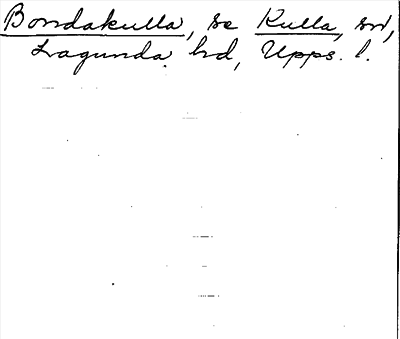 Bondakulla, se Kulla, sn,
Lagunda hd, Upps. l.